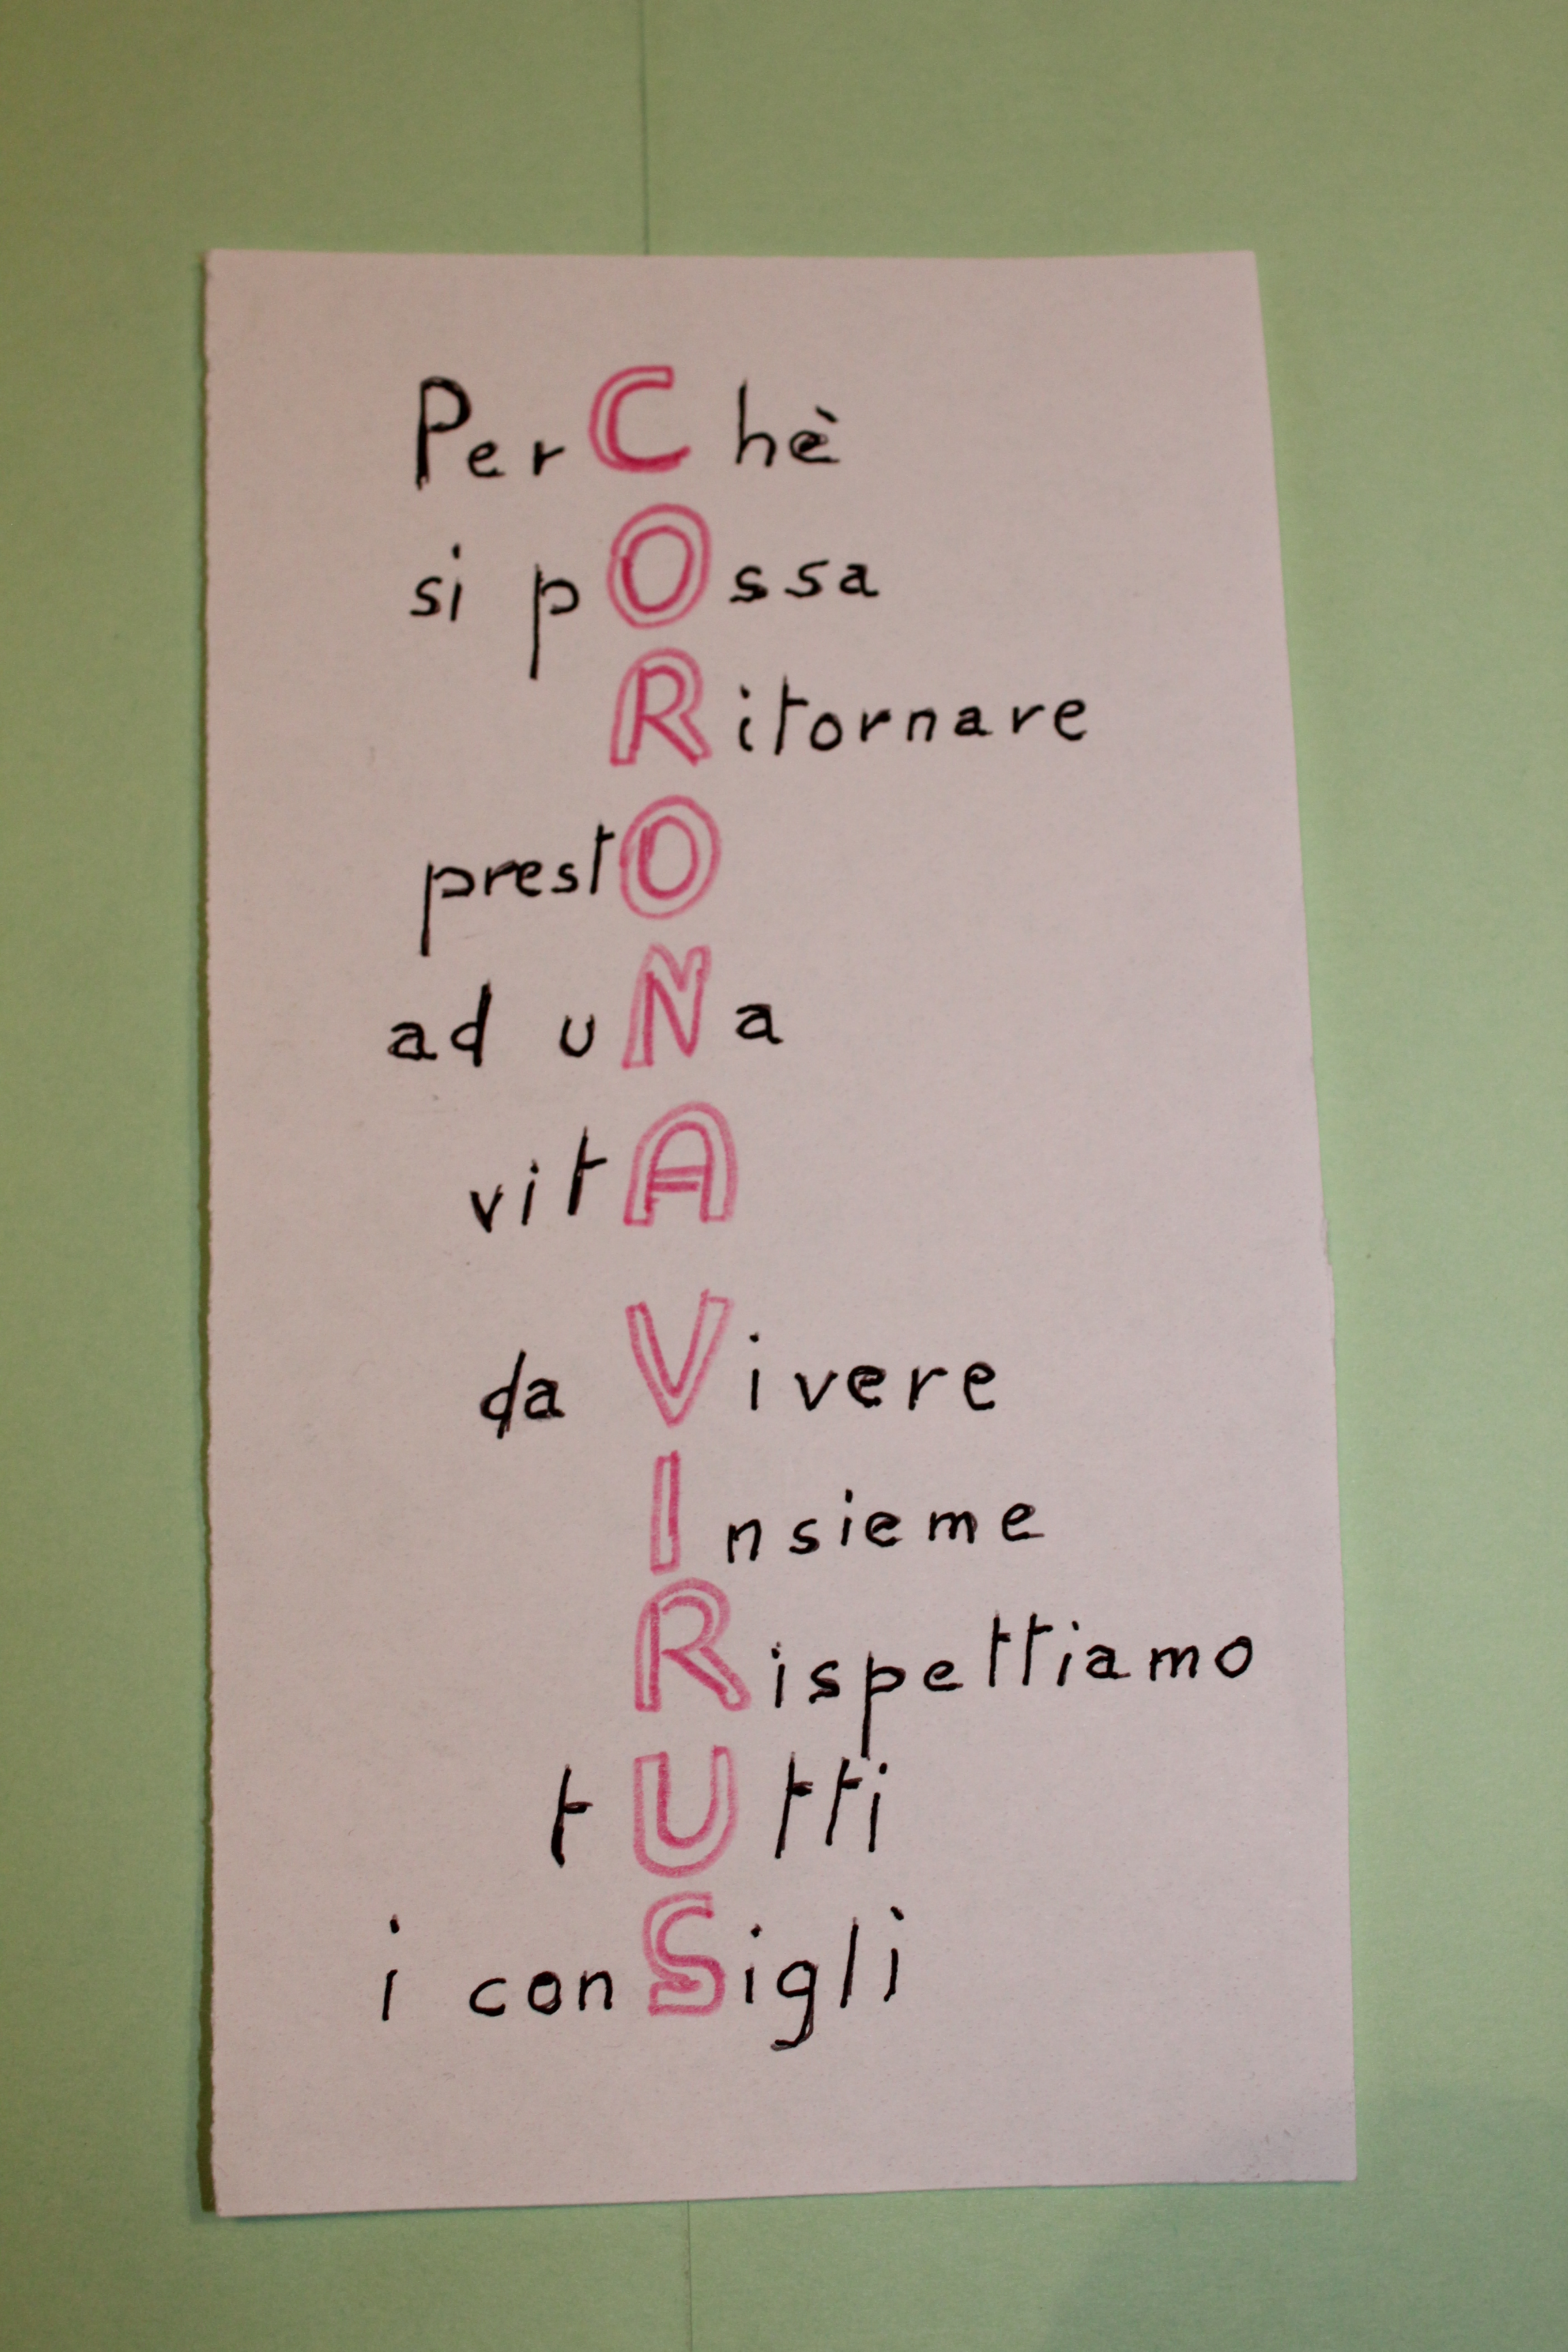 PerChè
si pOssa
Ritornare
prestO
ad uNa
vitA
da Vivere
Insieme
Rispettiamo
tUtti
i conSigli